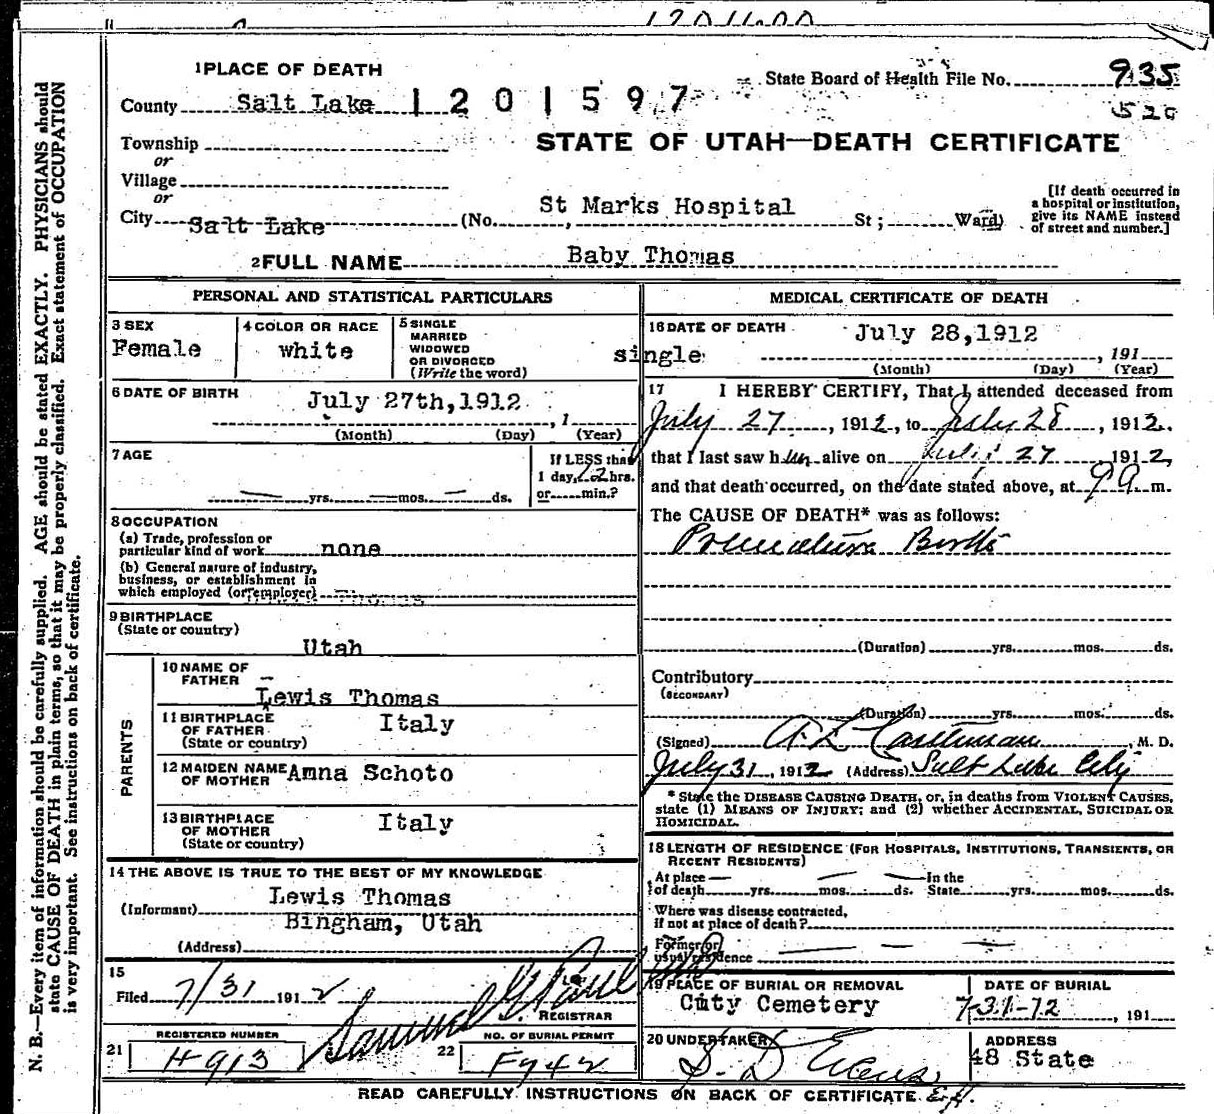 1 PLACE OF DEATH
State Board of Health File No. 935
County Salt Lake 1201597
520
Township
or
STATE OF UTAH—DEATH CERTIFICATE
Village
or
City Salt Lake (No. St Marks Hospital St; Ward)
[If death occurred in
a hospital or institution,
give its NAME instead
of street and number.]
2 FULL NAME Baby Thomas
PERSONAL AND STATISTICAL PARTICULARS
3 SEX
Female
4 COLOR OR RACE
white
5 SINGLE
MARRIED
WIDOWED
OR DIVORCED
(Write the word)
single
6 DATE OF BIRTH
July 27th,1912 , 1
(Month) (Day) (Year)
7 AGE
yrs. mos. ds.
If LESS than
1 day, 22 hrs.
or min.?
8 OCCUPATION
(a) Trade, profession or
particular kind of work none
(b) General nature of industry,
business, or establishment in
which employed (or employer)
9 BIRTHPLACE
(State or country)
Utah
PARENTS
10 NAME OF
FATHER
Lewis Thomas
11 BIRTHPLACE
OF FATHER
(State or country)
Italy
12 MAIDEN NAME
OF MOTHER
Anna Schoto
13 BIRTHPLACE
OF MOTHER
(State or country)
Italy
14 THE ABOVE IS TRUE TO THE BEST OF MY KNOWLEDGE
(Informant) Lewis Thomas
Bingham, Utah
(Address)
15
Filed 7/31 1912
REGISTRAR
REGISTERED NUMBER
21 H913
NO. OF BURIAL PERMIT
22 F942
MEDICAL CERTIFICATE OF DEATH
16 DATE OF DEATH
July 28,1912
, 191
(Month) (Day) (Year)
17 I HEREBY CERTIFY, That I attended deceased from
July 27, 1912, to July 28, 1912.
that I last saw her alive on July 27 1912,
and that death occurred, on the date stated above, at 9 a m.
The CAUSE OF DEATH* was as follows:
Premature Birth
(Duration) yrs. mos. ds.
Contributory
(SECONDARY)
(Duration) yrs. mos. ds.
(Signed) A L Castleman, M. D.
July 31, 1912 (Address) Salt Lake City
* State the DISEASE CAUSING DEATH, or, in deaths from VIOLENT CAUSES,
state (1) MEANS OF INJURY; and (2) whether ACCIDENTAL, SUICIDAL OR
HOMICIDAL.
18 LENGTH OF RESIDENCE (FOR HOSPITALS, INSTITUTIONS, TRANSIENTS, OR
RECENT RESIDENTS)
At place
of death yrs. mos. ds.
In the
State yrs. mos. ds.
Where was disease contracted,
if not at place of death?
Former or
usual residence
19 PLACE OF BURIAL OR REMOVAL
City Cemetery
DATE OF BURIAL
7-31-12, 191
20 UNDERTAKER
S. D. Evans
ADDRESS
48 State
READ CAREFULLY INSTRUCTIONS ON BACK OF CERTIFICATE
N. B.—Every item of information should be carefully supplied. AGE should be stated EXACTLY. PHYSICIANS should
state CAUSE OF DEATH in plain terms, so that it may be properly classified. Exact statement of OCCUPATION
is very important. See instructions on back of certificate.